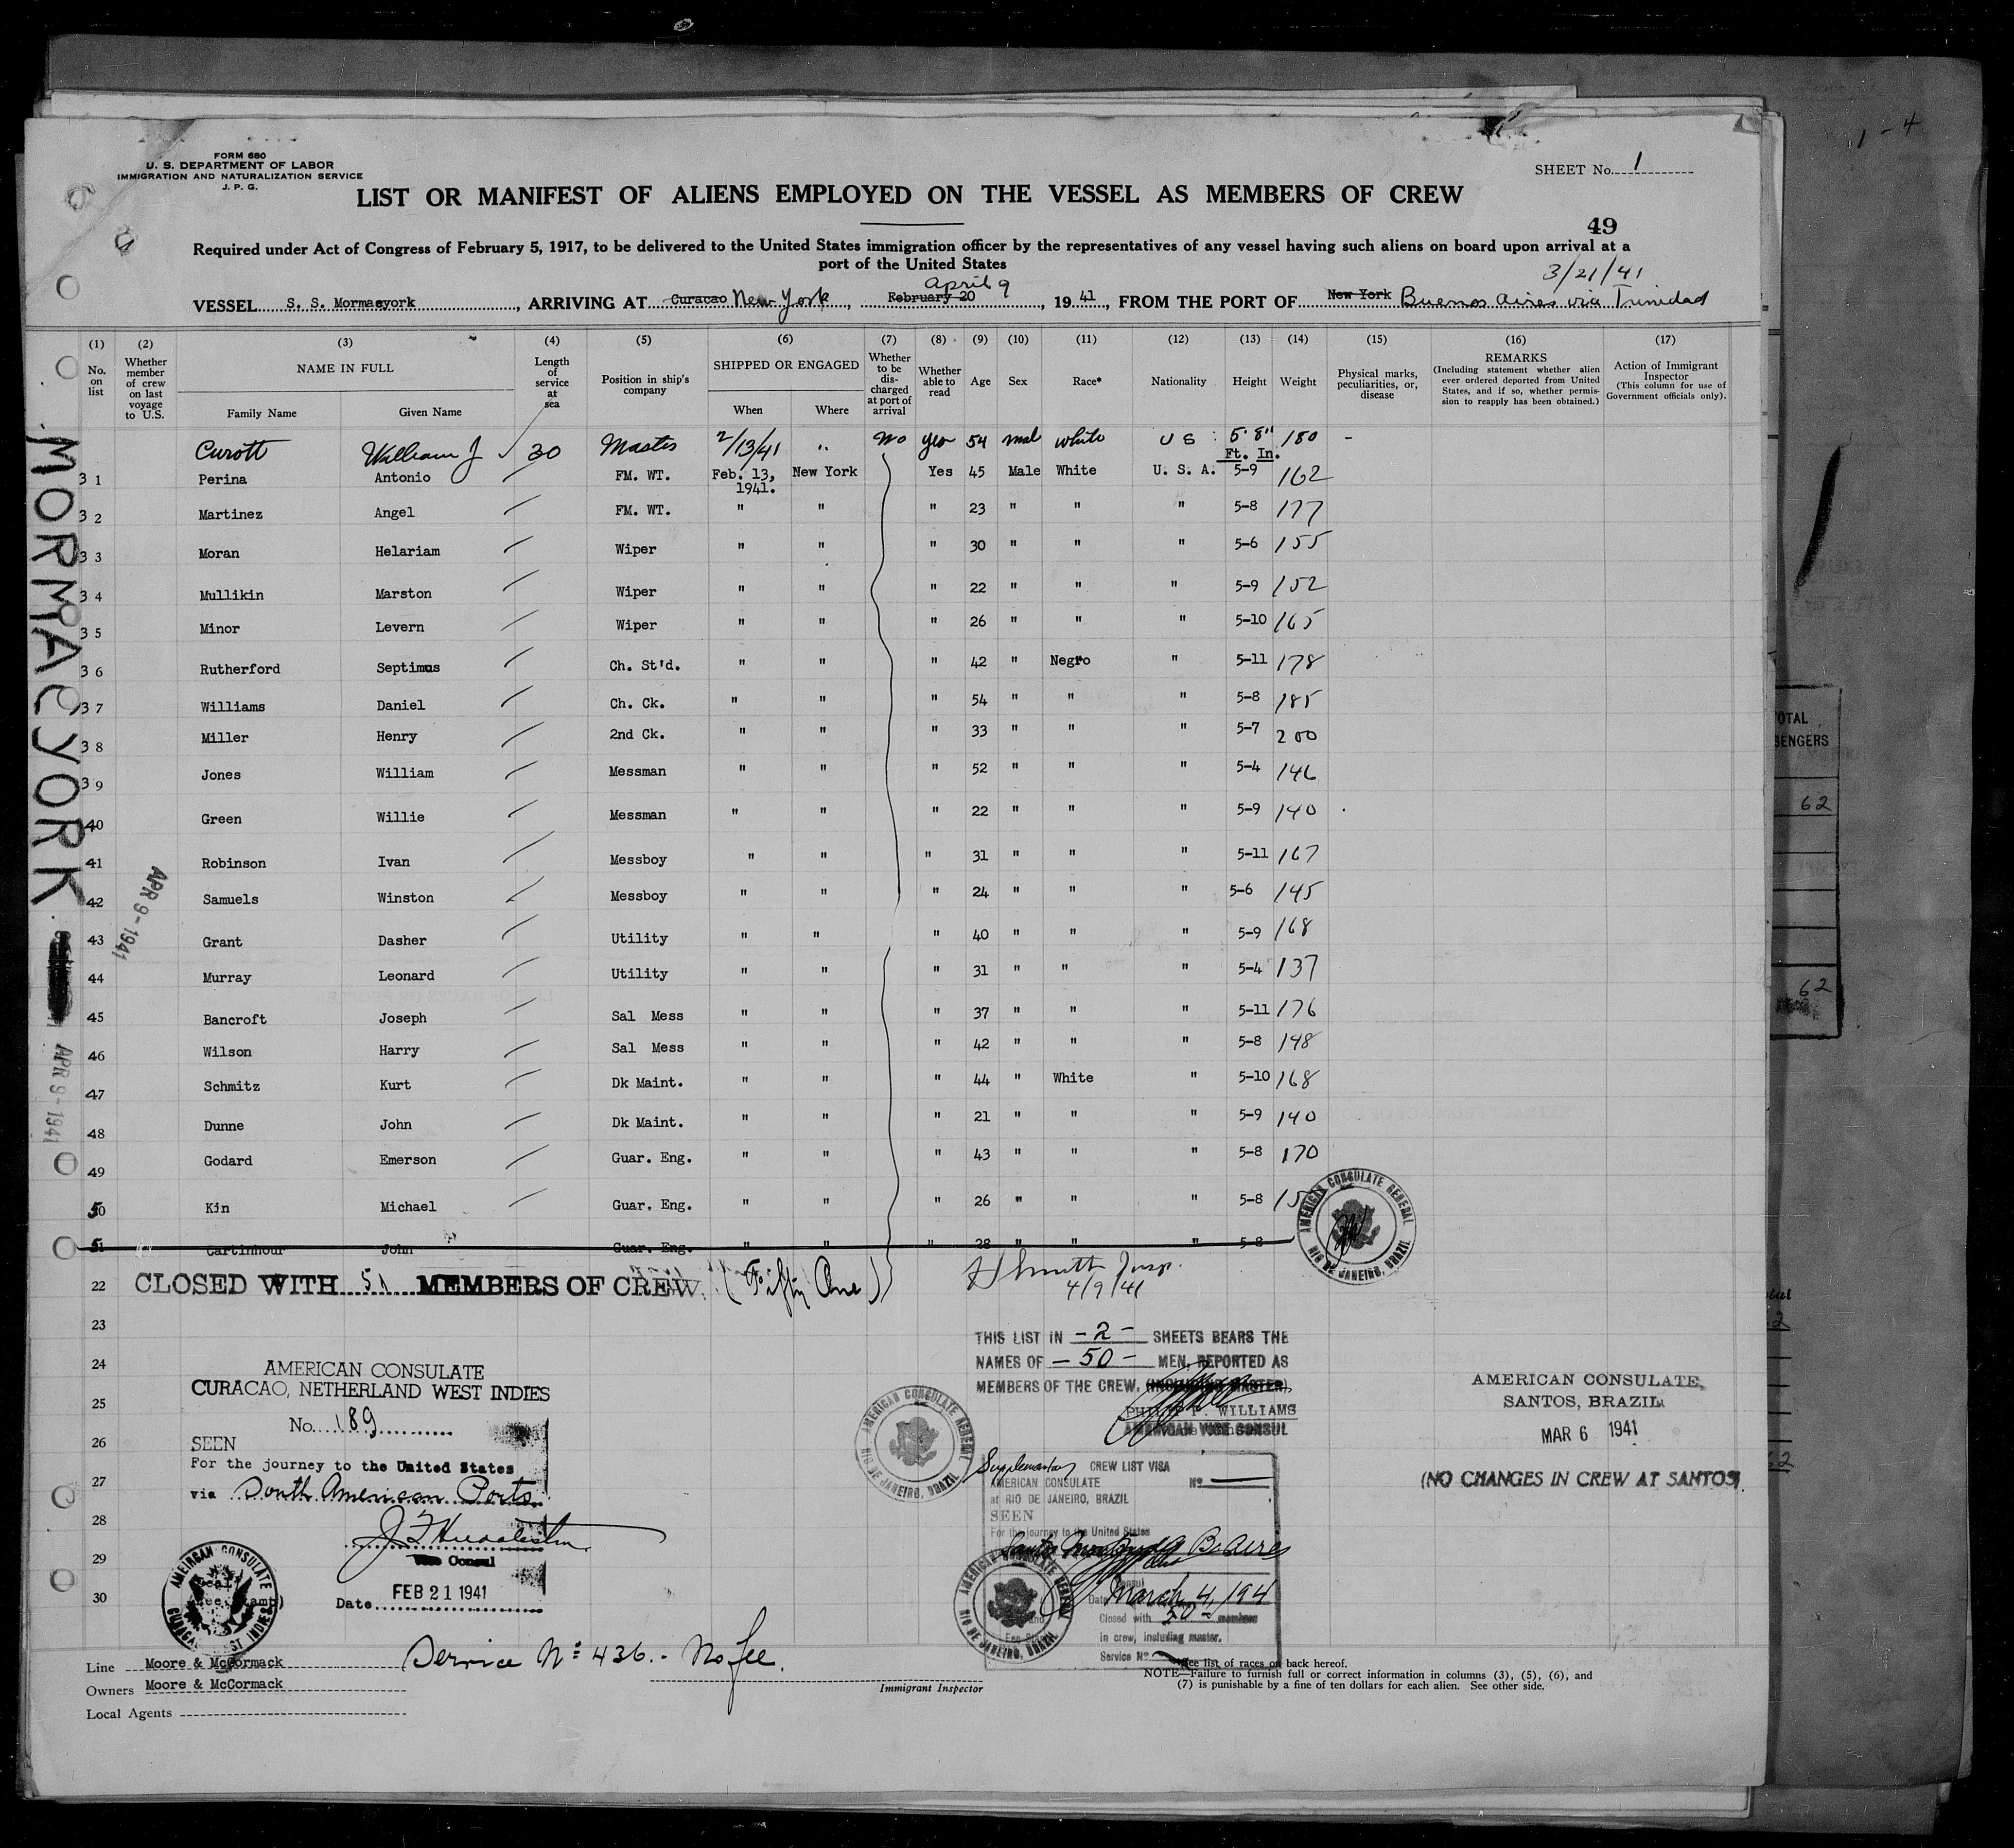 FORM 680
U. S. DEPARTMENT OF LABOR
IMMIGRATION AND NATURALIZATION SERVICE
J. P. G.
SHEET No. 1
LIST OR MANIFEST OF ALIENS EMPLOYED ON THE VESSEL AS MEMBERS OF CREW
49
Required under Act of Congress of February 5, 1917, to be delivered to the United States immigration officer by the representatives of any vessel having such aliens on board upon arrival at a
port of the United States
3/21/41
VESSEL S. S. Mormacyork, ARRIVING AT Curacao New York, February 20 April 9, 19 41, FROM THE PORT OF New York Buenos Aires via Trinidad
(1) No. on list
(2) Whether member of crew on last voyage to U.S.
(3) NAME IN FULL
Family Name Given Name
(4) Length of service at sea
(5) Position in ship's company
(6) SHIPPED OR ENGAGED
When Where
(7) Whether to be discharged at port of arrival
(8) Whether able to read
(9) Age
(10) Sex
(11) Race*
(12) Nationality
(13) Height
(14) Weight
(15) Physical marks, peculiarities, or, disease
(16) REMARKS
(Including statement whether alien ever ordered deported from United States, and if so, whether permission to reapply has been obtained.)
(17) Action of Immigrant Inspector
(This column for use of Government officials only).
Curott William J 30 Master 2/13/41 " No yes 54 mal white U S 5' 8" 180 -
Ft. In.
31 Perina Antonio FM. WT. Feb. 13, 1941. New York Yes 45 Male White U. S. A. 5-9 162
32 Martinez Angel FM. WT. " " " 23 " " " 5-8 177
33 Moran Helariam Wiper " " " 30 " " " 5-6 155
34 Mullikin Marston Wiper " " " 22 " " " 5-9 152
35 Minor Levern Wiper " " " 26 " " " 5-10 165
36 Rutherford Septimus Ch. St'd. " " " 42 " Negro " 5-11 178
37 Williams Daniel Ch. Ck. " " " 54 " " " 5-8 185
38 Miller Henry 2nd Ck. " " " 33 " " " 5-7 200
39 Jones William Messman " " " 52 " " " 5-4 146
40 Green Willie Messman " " " 22 " " " 5-9 140
41 Robinson Ivan Messboy " " " 31 " " " 5-11 167
42 Samuels Winston Messboy " " " 24 " " " 5-6 145
43 Grant Dasher Utility " " " 40 " " " 5-9 168
44 Murray Leonard Utility " " " 31 " " " 5-4 137
45 Bancroft Joseph Sal Mess " " " 37 " " " 5-11 176
46 Wilson Harry Sal Mess " " " 42 " " " 5-8 148
47 Schmitz Kurt Dk Maint. " " " 44 " White " 5-10 168
48 Dunne John Dk Maint. " " " 21 " " " 5-9 140
49 Godard Emerson Guar. Eng. " " " 43 " " " 5-8 170
50 Kin Michael Guar. Eng. " " " 26 " " " 5-8
51 Cartinhour John Guar. Eng. " " " 28 " " " 5-8
AMERICAN CONSULATE GENERAL
RIO DE JANEIRO, BRAZIL
22 CLOSED WITH 51 MEMBERS OF CREW. (Fifty One)
Insp.
4/9/41
23
24
25
26
27
28
29
30
MORMACYORK
APR 9-1941
APR 9-1941
AMERICAN CONSULATE
CURACAO, NETHERLAND WEST INDIES
No. 189
SEEN
For the journey to the United States
via South American Ports
Vice Consul
Date FEB 21 1941
AMERICAN CONSULATE
CURACAO, WEST INDIES
AMERICAN CONSULATE GENERAL
RIO DE JANEIRO, BRAZIL
THIS LIST IN -2- SHEETS BEARS THE
NAMES OF -50- MEN, REPORTED AS
MEMBERS OF THE CREW, (INCLUDING MASTER).
PHILIP P. WILLIAMS
AMERICAN VICE CONSUL
Supplementary CREW LIST VISA
AMERICAN CONSULATE No.
at RIO DE JANEIRO, BRAZIL
SEEN
For the journey to the United States
Santos B. Aires
Consul
Date March 4, 194
Closed with 50 members
in crew, including master.
Service No.
AMERICAN CONSULATE GENERAL
RIO DE JANEIRO, BRAZIL
AMERICAN CONSULATE,
SANTOS, BRAZIL
MAR 6 1941
(NO CHANGES IN CREW AT SANTOS)
Line Moore & McCormack
Owners Moore & McCormack
Local Agents
Service No. 436.- No fee.
Immigrant Inspector
*See list of races on back hereof.
NOTE—Failure to furnish full or correct information in columns (3), (5), (6), and
(7) is punishable by a fine of ten dollars for each alien. See other side.
1-4
TOTAL
62
62